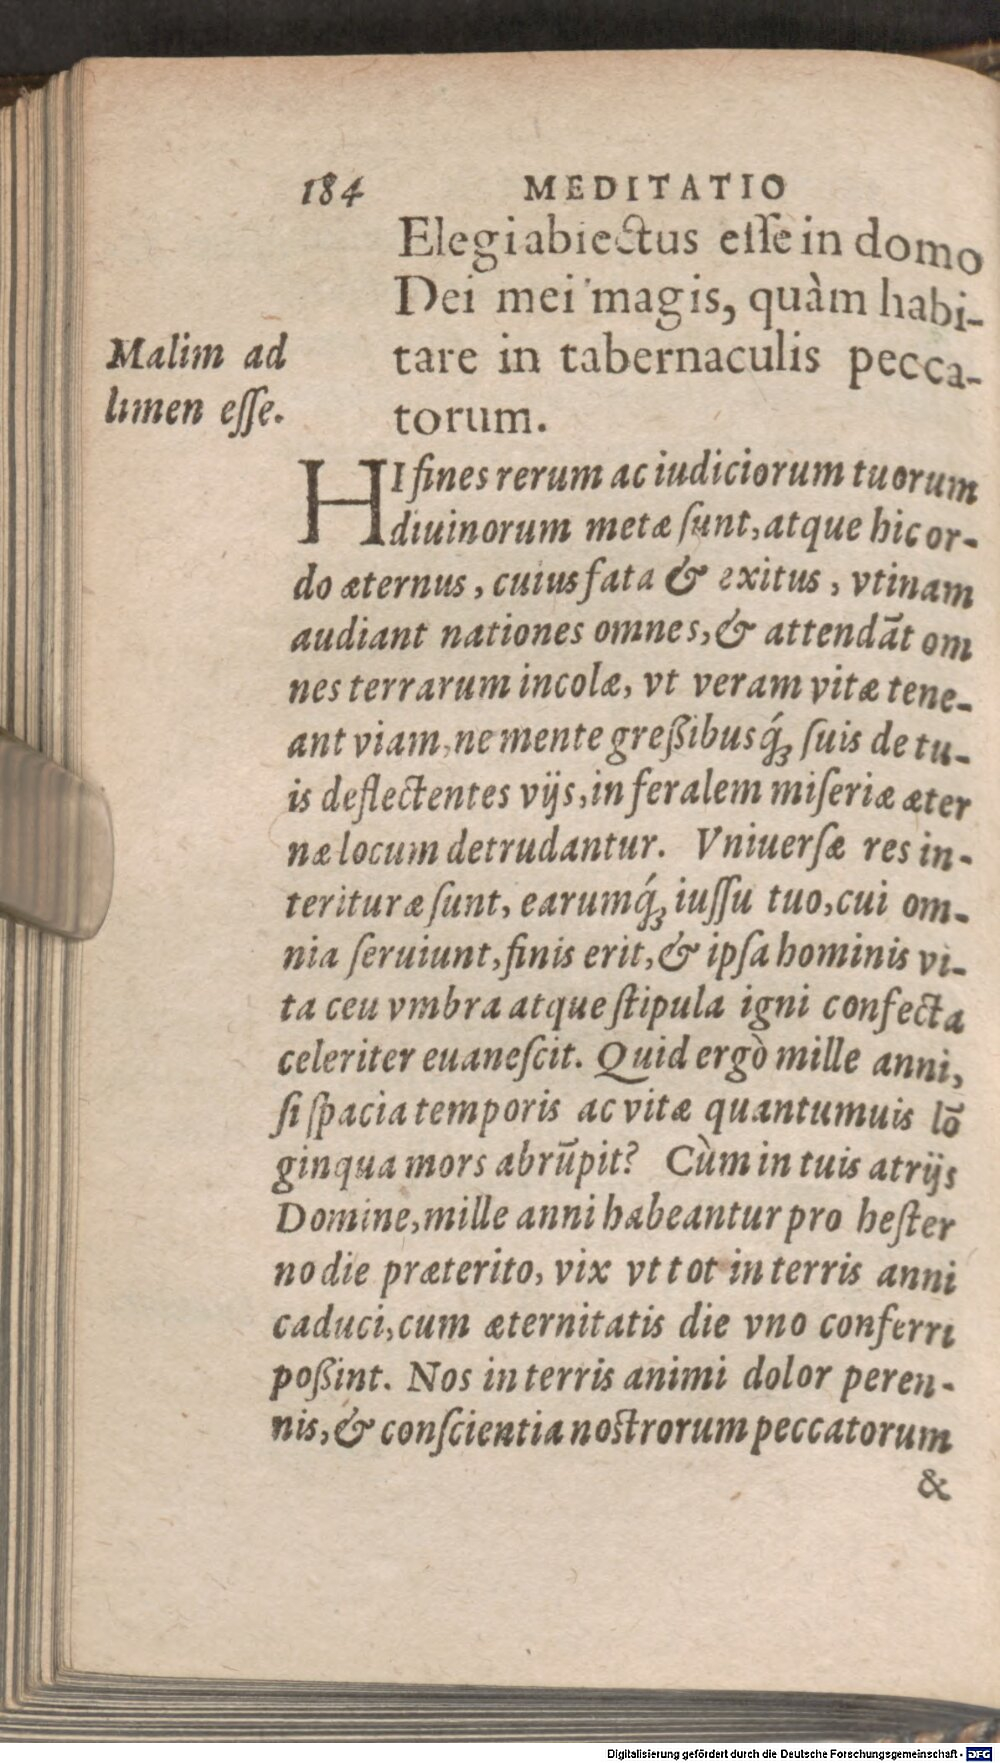 184 MEDITATIO
Elegi abiectus eſſe in domo
Dei mei magis, quàm habi-
Malim ad
limen eſſe.
tare in tabernaculis pecca-
torum.
HI fines rerum ac iudiciorum tuorum
diuinorum metæ ſunt, atque hic or-
do æternus, cuius fata & exitus, vtinam
audiant nationes omnes, & attendāt om
nes terrarum incolæ, vt veram vitæ tene-
ant viam, ne mente greßibusq́ꝫ ſuis de tu-
is deflectentes vijs, in feralem miſeriæ æter
næ locum detrudantur. Vniuerſæ res in-
terituræ ſunt, earumq́ꝫ iuſſu tuo, cui om-
nia ſeruiunt, finis erit, & ipſa hominis vi-
ta ceu vmbra atque ſtipula igni confecta
celeriter euaneſcit. Quid ergò mille anni,
ſi ſpacia temporis ac vitæ quantumuis lō
ginqua mors abrūpit? Cùm in tuis atrijs
Domine, mille anni habeantur pro heſter
no die præterito, vix vt tot in terris anni
caduci, cum æternitatis die vno conferri
poßint. Nos in terris animi dolor peren-
nis, & conſcientia noſtrorum peccatorum
&
Digitalisierung gefördert durch die Deutsche Forschungsgemeinschaft - DFG